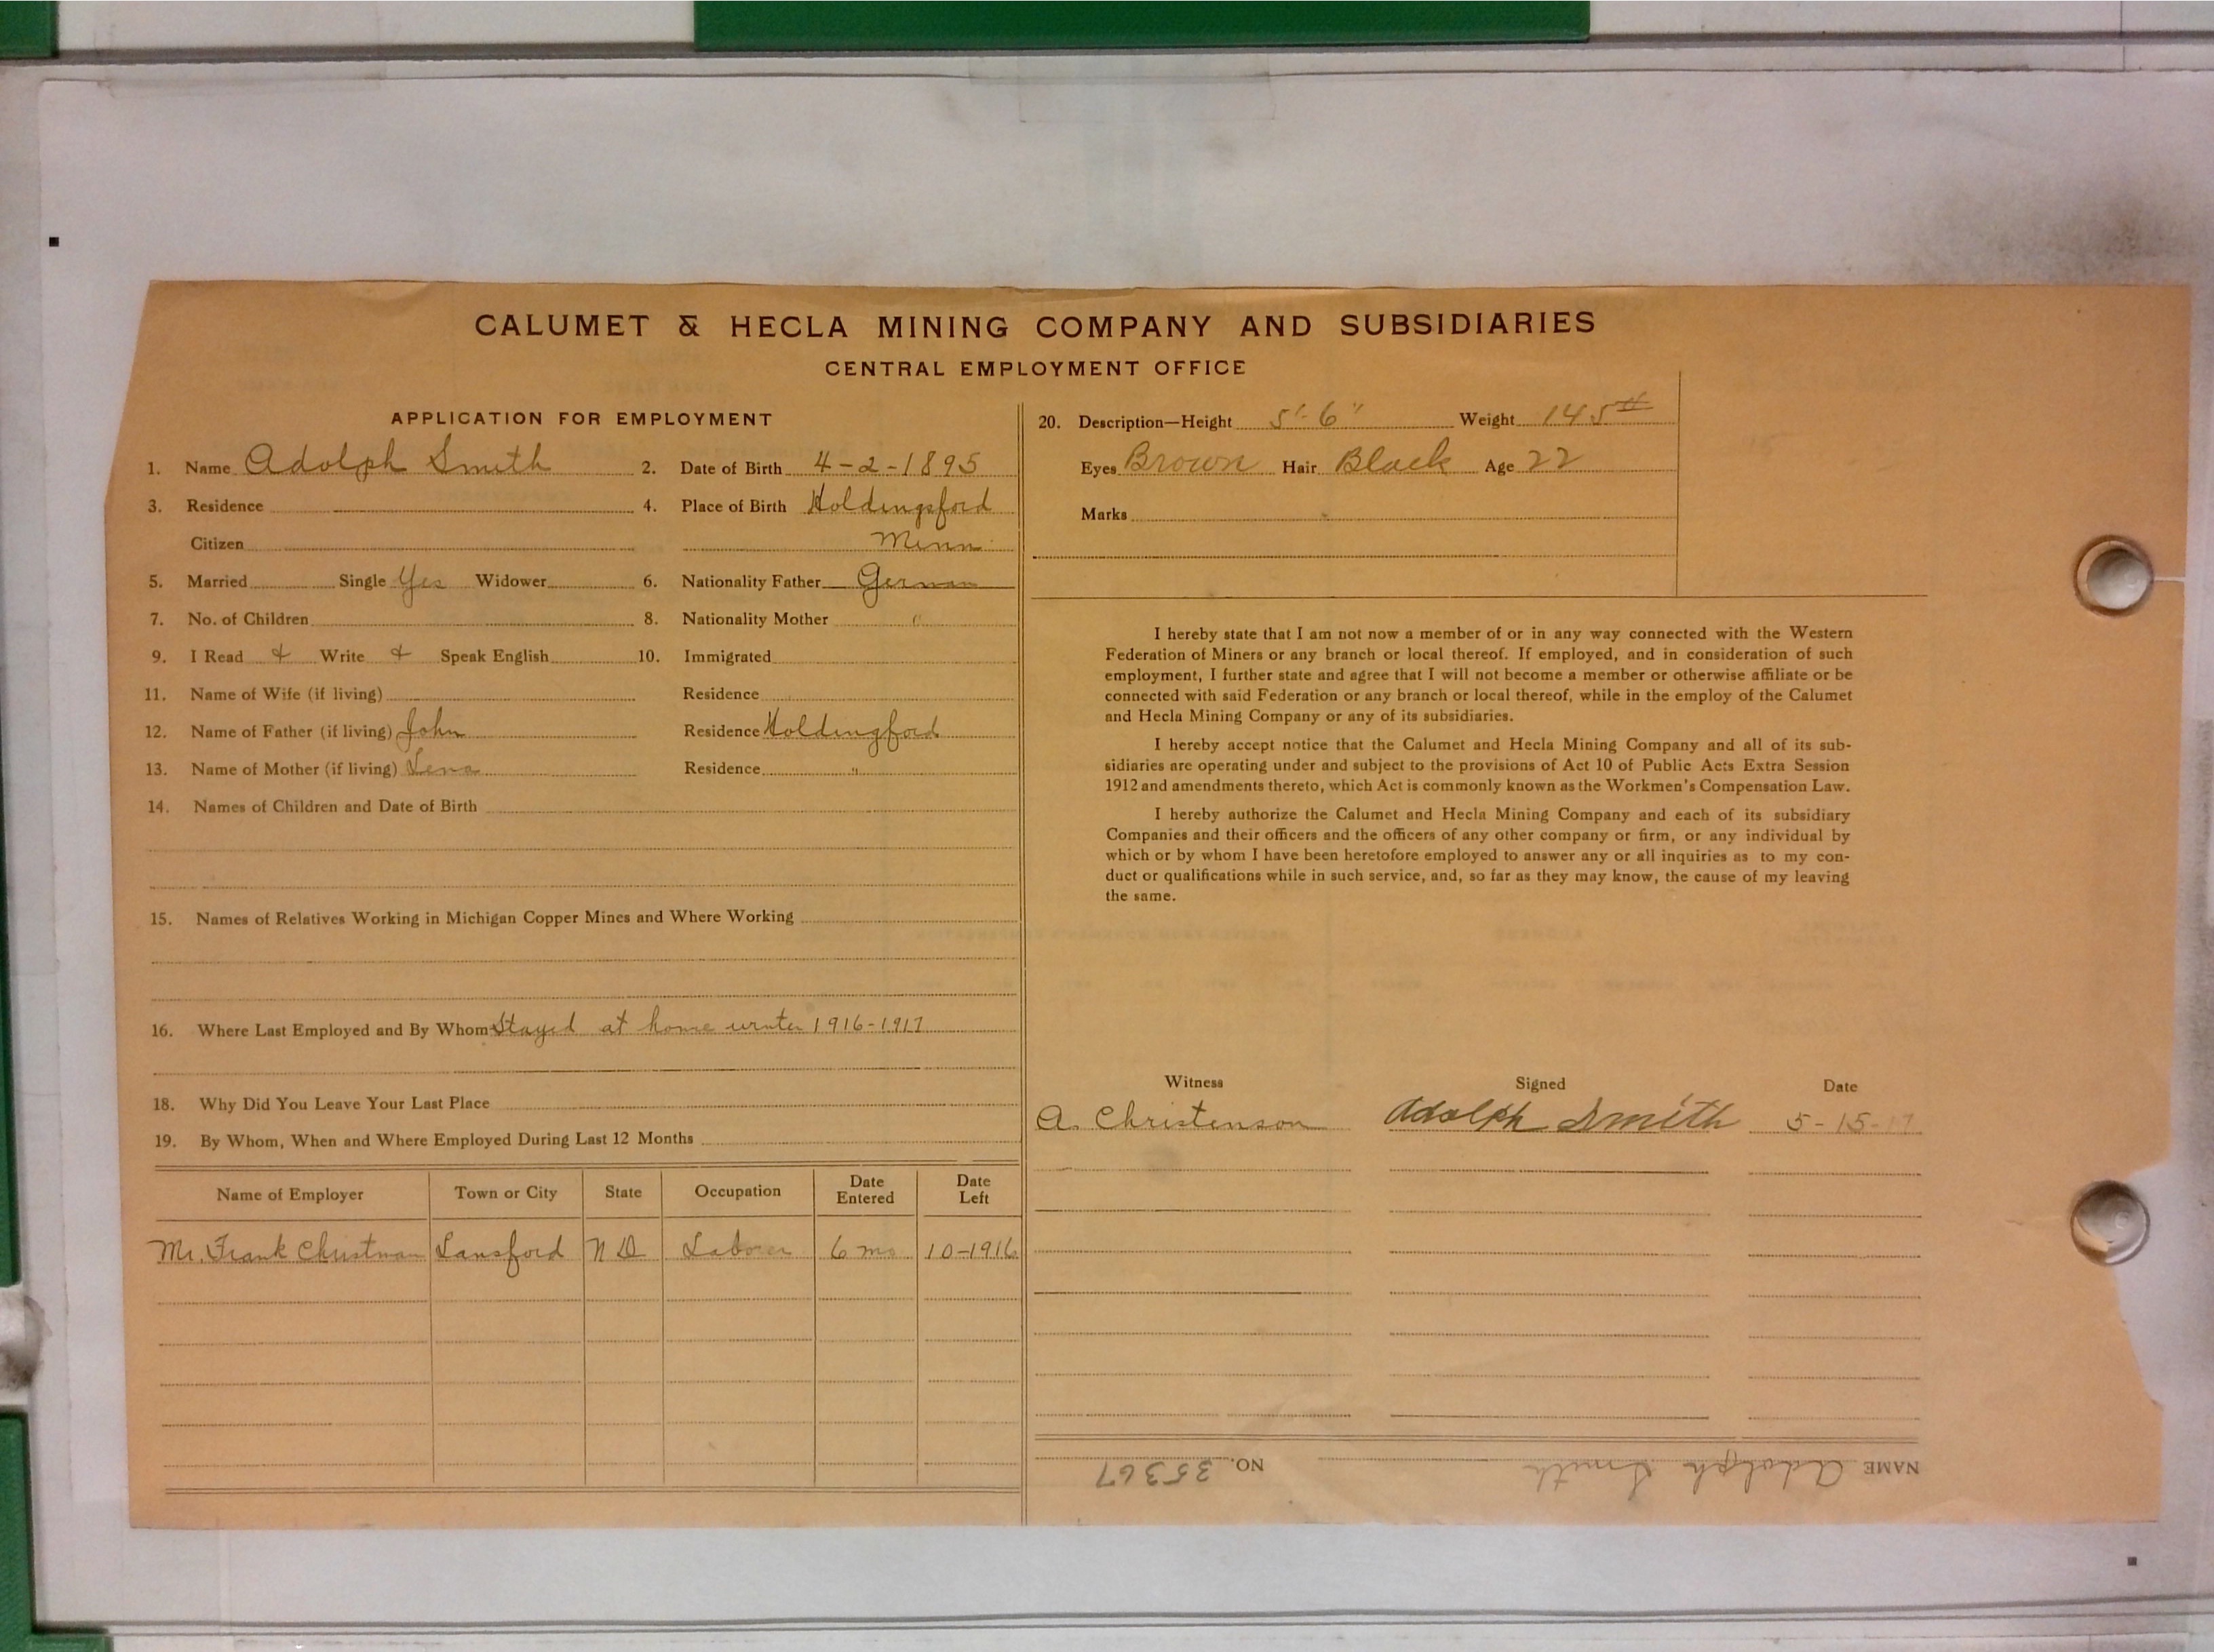 CALUMET & HECLA MINING COMPANY AND SUBSIDIARIES
CENTRAL EMPLOYMENT OFFICE
APPLICATION FOR EMPLOYMENT
1. Name Adolph Smith 2. Date of Birth 4-2-1895
3. Residence 4. Place of Birth Holdingsford
Citizen Minn
5. Married Single Yes Widower 6. Nationality Father German
7. No. of Children 8. Nationality Mother "
9. I Read + Write + Speak English 10. Immigrated
11. Name of Wife (if living) Residence
12. Name of Father (if living) John Residence Holdingford
13. Name of Mother (if living) Lena Residence "
14. Names of Children and Date of Birth
15. Names of Relatives Working in Michigan Copper Mines and Where Working
16. Where Last Employed and By Whom Stayed at home winter 1916-1917
18. Why Did You Leave Your Last Place
19. By Whom, When and Where Employed During Last 12 Months
Name of Employer Town or City State Occupation Date Entered Date Left
Mr. Frank Christman Lansford N D Laborer 6 mo 10-1916
20. Description—Height 5'-6" Weight 145#
Eyes Brown Hair Black Age 22
Marks
I hereby state that I am not now a member of or in any way connected with the Western
Federation of Miners or any branch or local thereof. If employed, and in consideration of such
employment, I further state and agree that I will not become a member or otherwise affiliate or be
connected with said Federation or any branch or local thereof, while in the employ of the Calumet
and Hecla Mining Company or any of its subsidiaries.
I hereby accept notice that the Calumet and Hecla Mining Company and all of its sub-
sidiaries are operating under and subject to the provisions of Act 10 of Public Acts Extra Session
1912 and amendments thereto, which Act is commonly known as the Workmen's Compensation Law.
I hereby authorize the Calumet and Hecla Mining Company and each of its subsidiary
Companies and their officers and the officers of any other company or firm, or any individual by
which or by whom I have been heretofore employed to answer any or all inquiries as to my con-
duct or qualifications while in such service, and, so far as they may know, the cause of my leaving
the same.
Witness Signed Date
A. Christenson Adolph Smith 5-15-17
NAME Adolph Smith NO. 35367